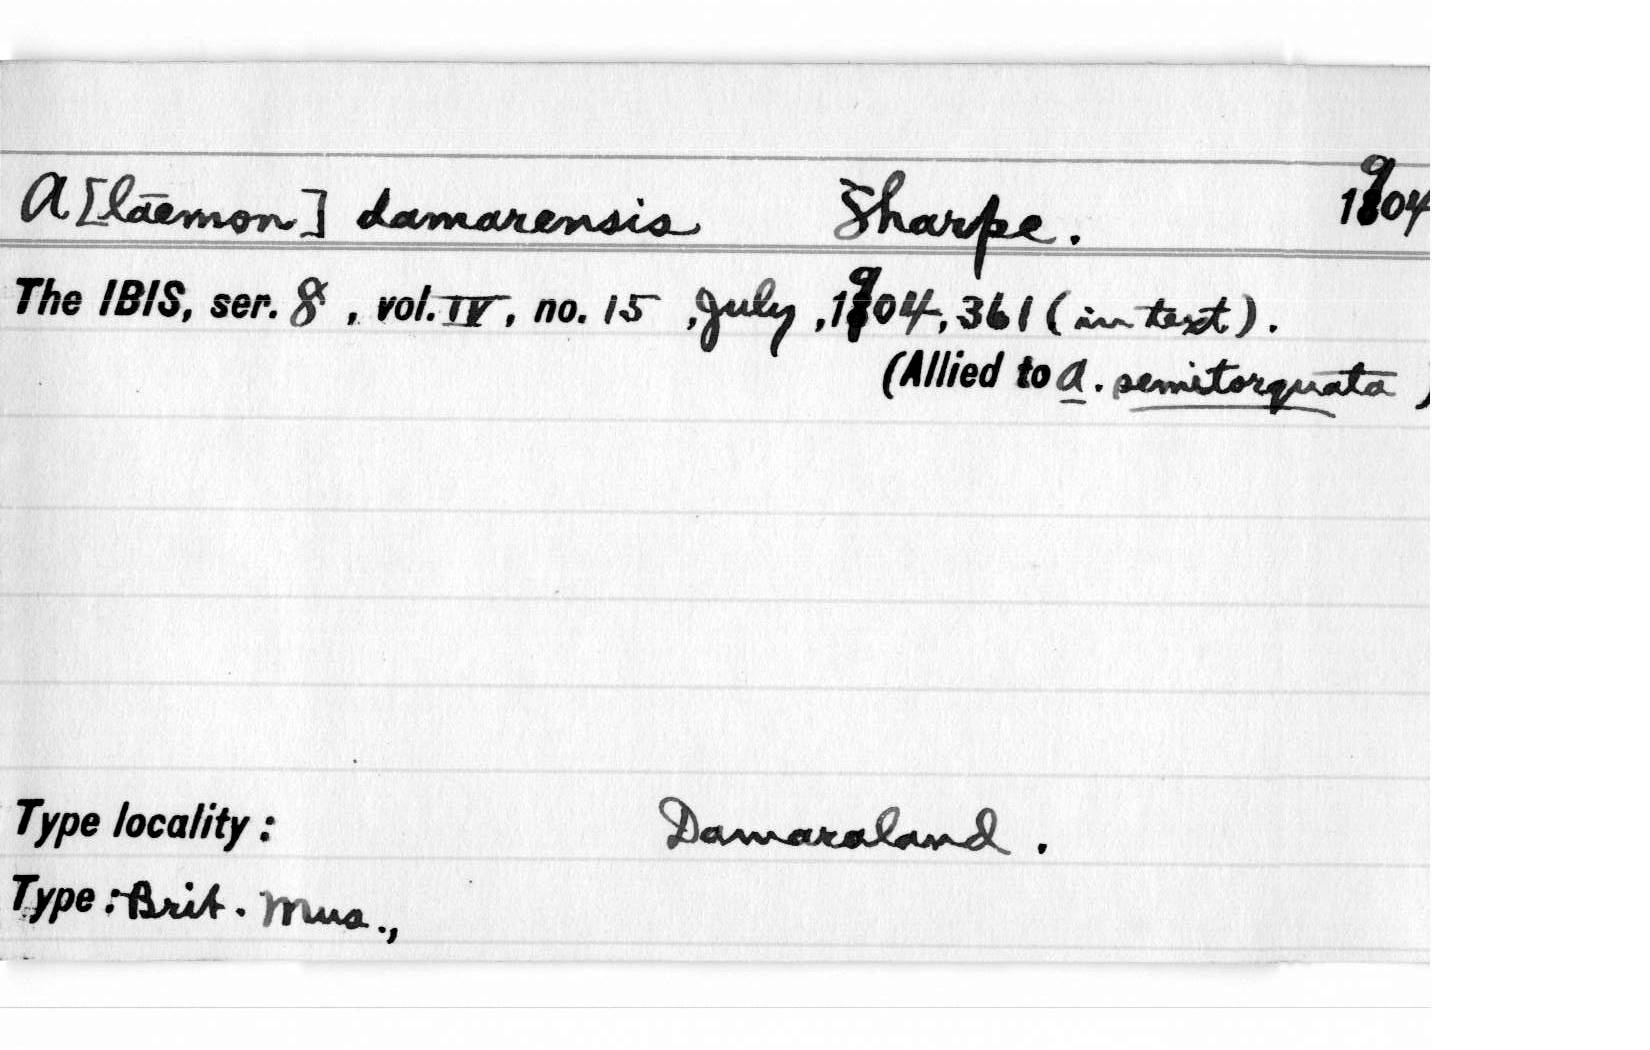 A[laemon] damarensis Sharpe. 1904
The IBIS, ser. 8, vol. IV, no. 15, July, 1904, 361 (in text).
(Allied to A. semitorquata)
Type locality: Damaraland.
Type: Brit. Mus.,